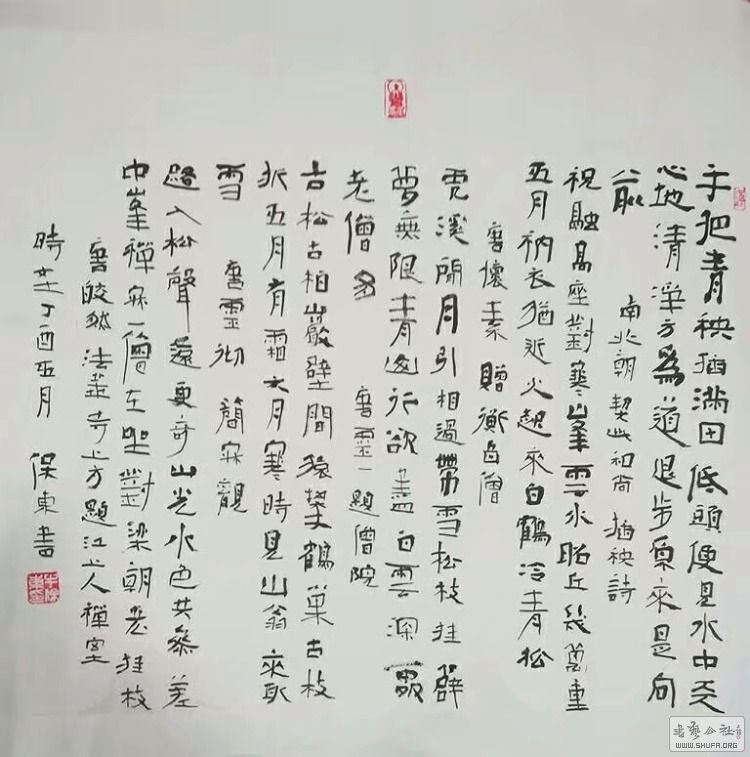 手把青秧插满田低頭便見水中天
心地清淨方為道退步原來是向
前 南北朝 契此和尚 插秧詩
祝融高座對寒峯雲水昭丘幾萬重
五月衲衣猶近火起來白鶴冷青松
唐懷素 贈衡岳僧
虎溪閒月引相過帶雪松枝挂薜
萝無限青山行欲盡白雲深處
老僧多 唐靈一 題僧院
古松古柏巖壁間猿攀鶴巢古枝
折五月有霜六月寒時見山翁來取
雪 唐靈彻 簡寂觀
路入松聲遠更奇山光水色共參差
中峯禪寂一僧在坐對梁朝老桂枝
唐皎然 法華寺上方題江上人禪室
時在丁酉五月 保東書
書藝公社
WWW.SHUFA.ORG